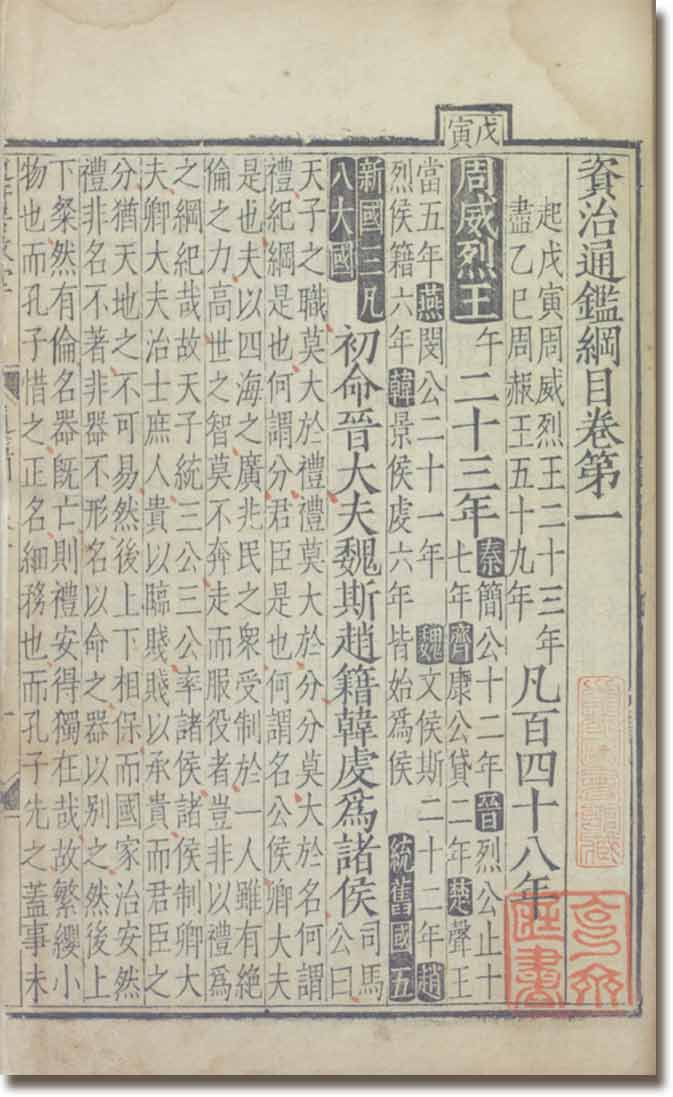 戊寅
資治通鑑綱目卷第一
起戊寅周威烈王二十三年
盡乙巳周赧王五十九年
凡百四十八年
周威烈王午二十三年
秦簡公十二年晉烈公止十
七年齊康公貸二年楚聲王
當五年燕閔公二十一年魏文侯斯二十二年趙
烈侯籍六年韓景侯虔六年皆始爲侯統舊國五
新國三凡
八大國
初命晉大夫魏斯趙籍韓虔爲諸侯
司馬
公曰
天子之職莫大於禮禮莫大於分分莫大於名何謂
禮紀綱是也何謂分君臣是也何謂名公侯卿大夫
是也夫以四海之廣兆民之衆受制於一人雖有絶
倫之力高世之智莫不奔走而服役者豈非以禮爲
之綱紀哉故天子統三公三公率諸侯諸侯制卿大
夫卿大夫治士庶人貴以臨賤賤以承貴而君臣之
分猶天地之不可易然後上下相保而國家治安然
禮非名不著非器不形名以命之器以別之然後上
下粲然有倫名器既亡則禮安得獨在哉故繁纓小
物也而孔子惜之正名細務也而孔子先之蓋事未